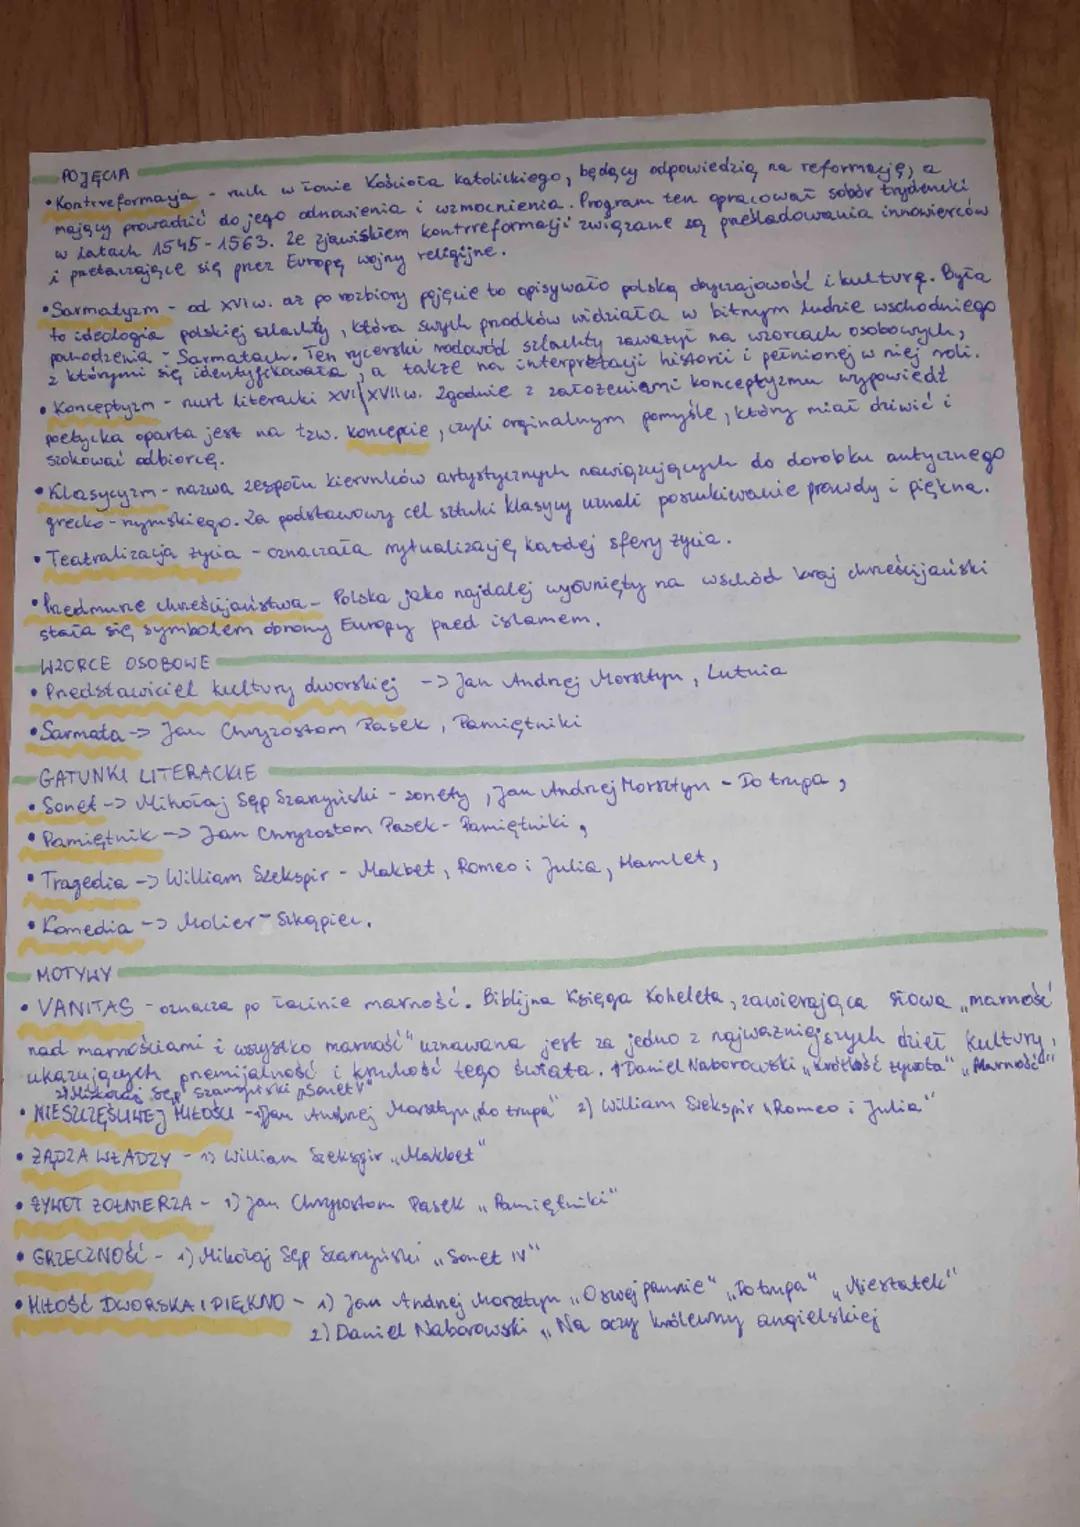 POJĘCIA
• Kontrreformacja - ruch w łonie Kościoła katolickiego, będący odpowiedzią na reformację, a
mający prowadzić do jego odnowienia i wzmocnienia. Program ten opracował sobór trydencki
w latach 1545-1563. Ze zjawiskiem kontrreformacji związane są prześladowania innowierców
i przetaczające się przez Europę wojny religijne.
• Sarmatyzm - od XVI w. aż po rozbiory pojęcie to opisywało polską obyczajowość i kulturę. Była
to ideologia polskiej szlachty, która swych przodków widziała w bitnym ludzie wschodniego
pochodzenia - Sarmatach. Ten rycerski rodowód szlachty zaważył na wzorcach osobowych,
z którymi się identyfikowała, a także na interpretacji historii i pełnionej w niej roli.
• Konceptyzm - nurt literacki XVI/XVII w. Zgodnie z założeniami konceptyzmu wypowiedź
poetycka oparta jest na tzw. koncepcie, czyli orginalnym pomyśle, który miał dziwić i
szokować odbiorcę.
• Klasycyzm - nazwa zespołu kierunków artystycznych nawiązujących do dorobku antycznego
grecko-rzymskiego. Za podstawowy cel sztuki klasycy uznali poszukiwanie prawdy i piękna.
• Teatralizacja życia - oznaczała rytualizację każdej sfery życia.
• Przedmurze chrześcijaństwa - Polska jako najdalej wysunięty na wschód kraj chrześcijański
stała się symbolem obrony Europy przed islamem.
WZORCE OSOBOWE
• Przedstawiciel kultury dworskiej -> Jan Andrzej Morsztyn, Lutnia
• Sarmata -> Jan Chryzostom Pasek, Pamiętniki
GATUNKI LITERACKIE
• Sonet -> Mikołaj Sęp Szarzyński - sonety, Jan Andrzej Morsztyn - Do trupa,
• Pamiętnik -> Jan Chryzostom Pasek - Pamiętniki,
• Tragedia -> William Szekspir - Makbet, Romeo i Julia, Hamlet,
• Komedia -> Molier - Skąpiec.
MOTYWY
• VANITAS - oznacza po łacinie marność. Biblijna Księga Koheleta, zawierająca słowa „marność
nad marnościami i wszystko marność" uznawana jest za jedno z najważniejszych dzieł kultury,
ukazujących przemijalność i kruchość tego świata. 1) Daniel Naborowski „Krótkość żywota" „Marność"
2) Mikołaj Sęp Szarzyński „Sonet V"
• NIESZCZĘŚLIWEJ MIŁOŚCI - 1) Jan Andrzej Morsztyn „do trupa" 2) William Szekspir „Romeo i Julia"
• ŻĄDZA WŁADZY - 1) William Szekspir „Makbet"
• ŻYWOT ŻOŁNIERZA - 1) Jan Chryzostom Pasek „Pamiętniki"
• GRZECZNOŚĆ - 1) Mikołaj Sęp Szarzyński „Sonet IV"
• MIŁOŚĆ DWORSKA I PIĘKNO - 1) Jan Andrzej Morsztyn „O swej pannie" „Do trupa" „Niestatek"
2) Daniel Naborowski „Na oczy królewny angielskiej